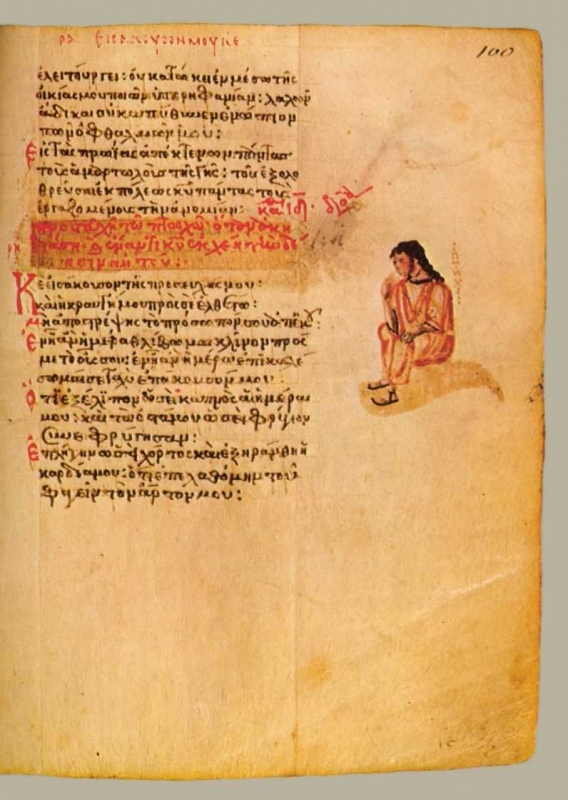 ρα εἰσάκουσον μου κε
100
ἐλειτούργει: οὐ κατώκει ἐν μέσω τῆς
οἰκίας μου ποιῶν ὑπερηφανίαν: λαλῶν
ἄδικα οὐ κατεύθυνεν ἐνώπιον
τῶν ὀφθαλμῶν μου:
Εἰς τὰς πρωΐας ἀπέκτεινον πάντας
τοὺς ἁμαρτωλοὺς τῆς γῆς: τοῦ ἐξολο
θρεῦσαι ἐκ πόλεως κυ πάντας τοὺς
ἐργαζομένους τὴν ἀνομίαν:
προσευχὴ τῶ πτωχῶ
ἐναντι κυ ἐκχέη τὴν δέ
Κε εἰσάκουσον τῆς προσευχῆς μου:
καὶ ἡ κραυγή μου πρός σε ἐλθέτω:
Μὴ ἀποστρέψης τὸ πρόσωπόν σου ἀπ' ἐμοῦ:
Ἐν ἧ ἂν ἡμέρα θλίβωμαι κλῖνον πρός
με τὸ οὖς σου: ἐν ἧ ἂν ἡμέρα ἐπικαλέ
σωμαί σε ταχὺ ἐπάκουσόν μου:
Ὅτι ἐξέλιπον ὡσεὶ καπνὸς αἱ ἡμέραι
μου: καὶ τὰ ὀστᾶ μου ὡσεὶ φρύγιον
συνεφρύγησαν:
Ἐπλήγην ὡσεὶ χόρτος καὶ ἐξηράνθη ἡ
καρδία μου: ὅτι ἐπελαθόμην τοῦ
φαγεῖν τὸν ἄρτον μου: